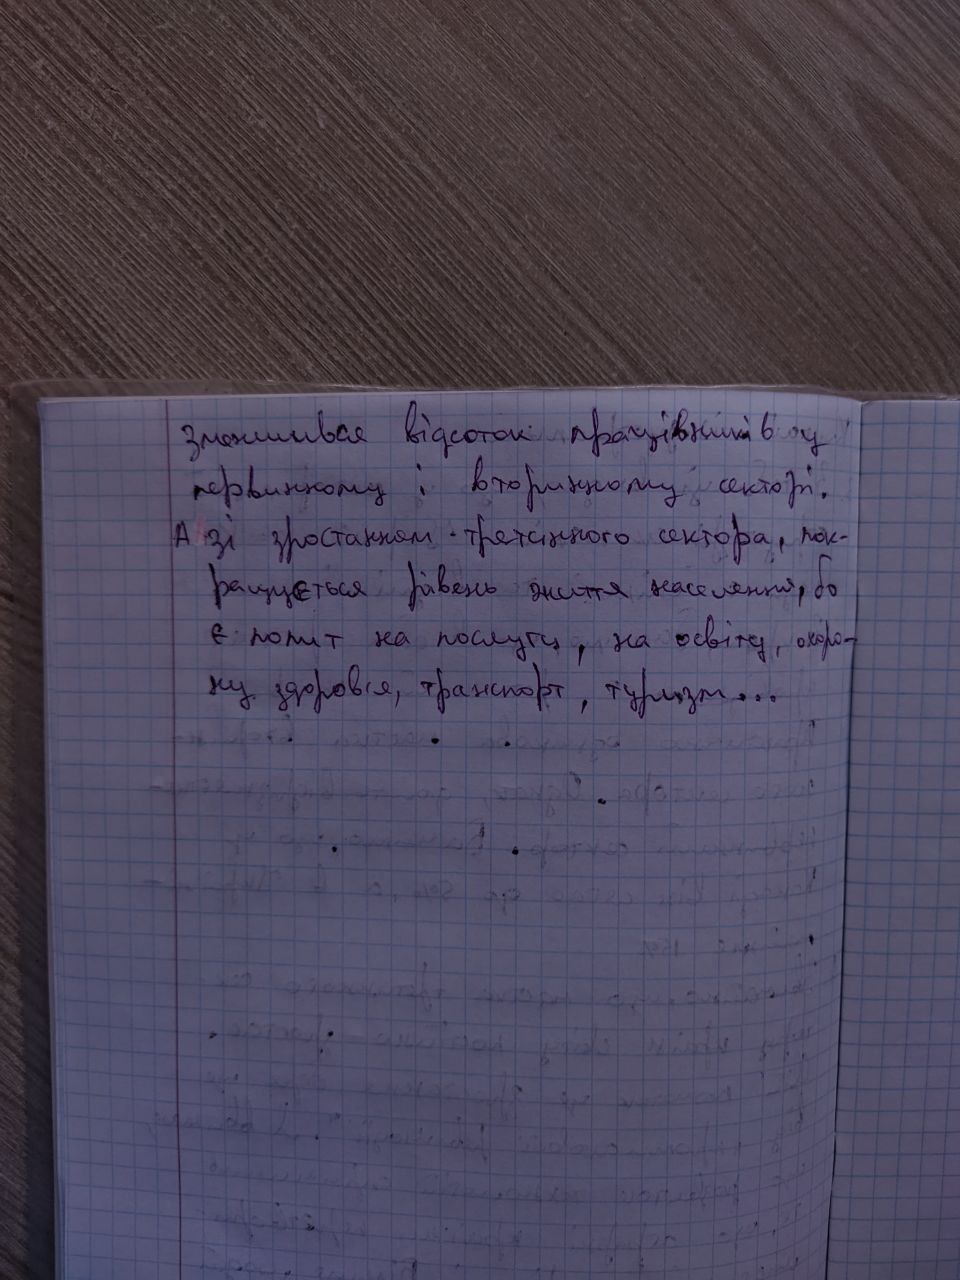 зменшився відсоток працівників у
первинному і вторинному секторі.
А зі зростанням третинного сектора, пок-
ращується рівень життя населення, бо
є попит на послуги, на освіту, охоро-
ну здоров'я, транспорт, туризм...